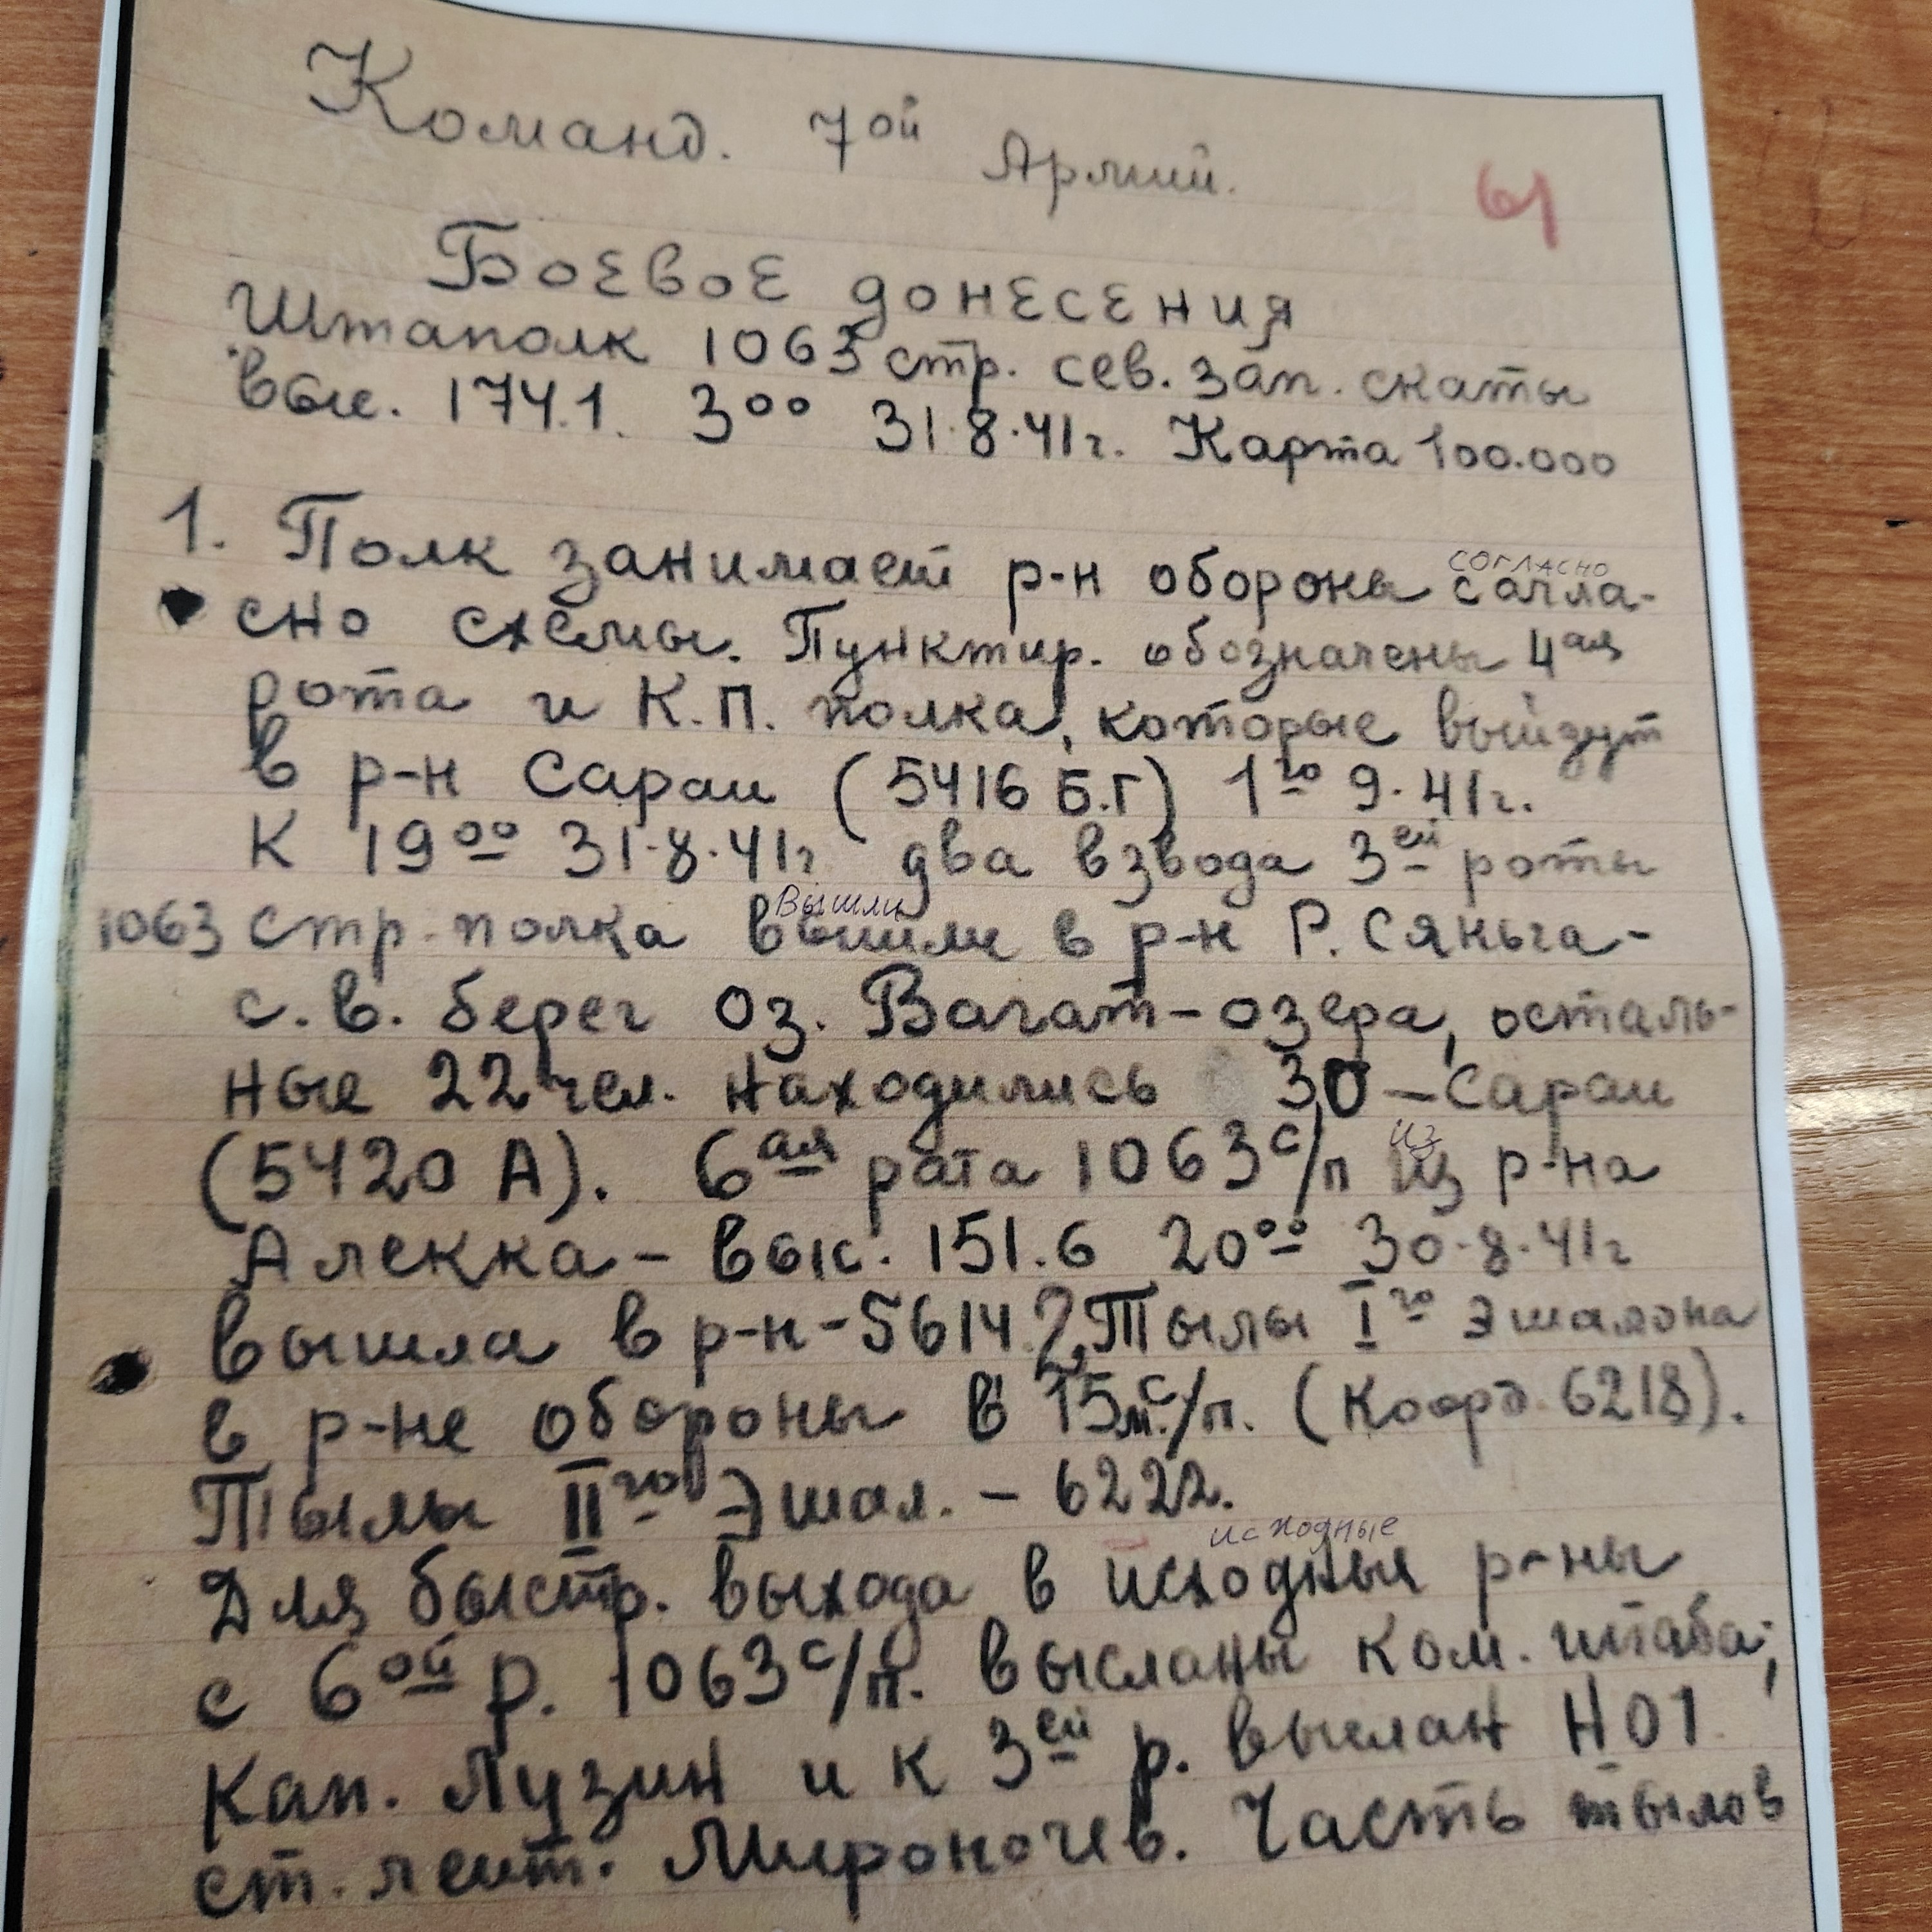 Команд. 7ой Армий.
61
Боевое донесения
Штаполк 1063 стр. сев. зап. скаты
выс. 174.1. 3⁰⁰ 31.8.41г. Карта 100.000
1. Полк занимает р-н обороны согла-
согласно
сно схемы. Пунктир. обозначены 4ая
рота и К.П. полка, которые выйдут
в р-н Сараи (5416 Б.Г) 1го 9.41г.
К 19⁰⁰ 31.8.41г два взвода 3ей роты
Вышли
1063 стр. полка вышли в р-н Р. Сяньга-
с.в. берег Оз. Вагат-озера, осталь-
ные 22 чел. находились 30 - Сараи
из
(5420 А). 6ая рата 1063 с/п из р-на
Алекка - выс. 151.6 20⁰⁰ 30.8.41г
вышла в р-н - 5614.?, Тылы Iго Эшалона
в р-не обороны в 15 м.с/п. (Коорд. 6218).
Тылы IIго Эшал. - 6222.
исходные
Для быстр. выхода в исходныя р-ны
с 6ой р. 1063 с/п. высланы ком. штаба;
Кап. Лузин и к 3ей р. выслан НО1
ст. лейт. Часть тылов